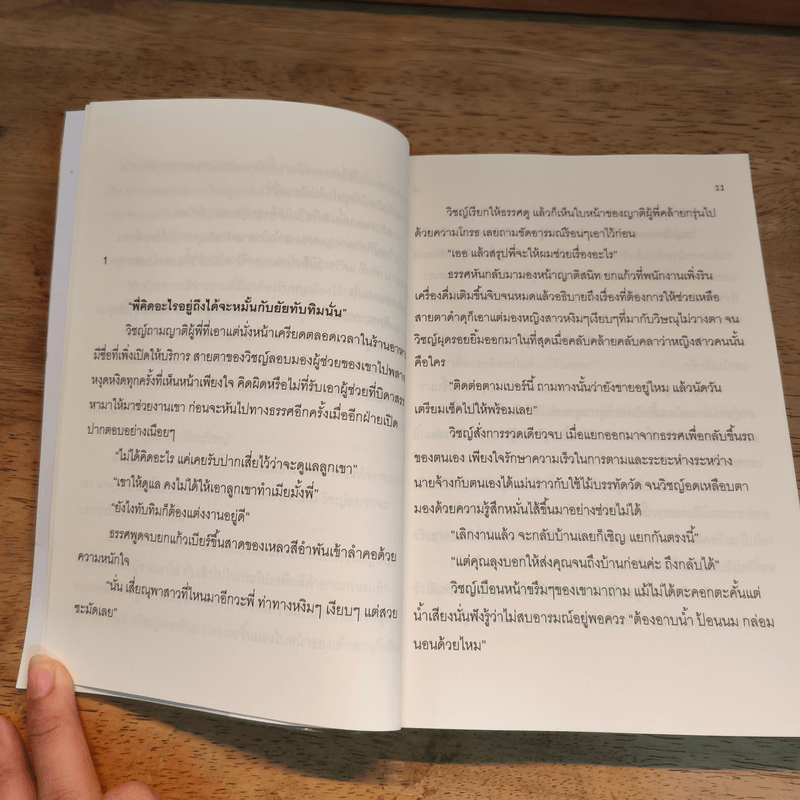 1
“พี่คิดอะไรอยู่ถึงได้จะหมั้นกับยัยทับทิมนั่น”
วิชญ์ถามญาติผู้พี่ที่เอาแต่นั่งหน้าเครียดตลอดเวลาในร้านอาหาร
มีชื่อที่เพิ่งเปิดให้บริการ สายตาของวิชญ์ลอบมองผู้ช่วยของเขาไปพลาง
หงุดหงิดทุกครั้งที่เห็นหน้าเพียงใจ คิดผิดหรือไม่ที่รับเอาผู้ช่วยที่บิดาสรร
หามาให้มาช่วยงานเขา ก่อนจะหันไปทางธรรศอีกครั้งเมื่ออีกฝ่ายเปิด
ปากตอบอย่างเนือยๆ
“ไม่ได้คิดอะไร แค่เคยรับปากเสี่ยไว้ว่าจะดูแลลูกเขา”
“เขาให้ดูแล คงไม่ได้ให้เอาลูกเขาทำเมียมั้งพี่”
“ยังไงทับทิมก็ต้องแต่งงานอยู่ดี”
ธรรศพูดจบยกแก้วเบียร์ขึ้นสาดของเหลวสีอำพันเข้าลำคอด้วย
ความหนักใจ
“นั่น เสี่ยณุพาสาวที่ไหนมาอีกวะพี่ ท่าทางหงิมๆ เงียบๆ แต่สวย
ชะมัดเลย”
11
วิชญ์เรียกให้ธรรศดู แล้วก็เห็นใบหน้าของญาติผู้พี่คล้ายกรุ่นไป
ด้วยความโกรธ เลยถามขัดอารมณ์ร้อนๆเอาไว้ก่อน
“เออ แล้วสรุปพี่จะให้ผมช่วยเรื่องอะไร”
ธรรศหันกลับมามองหน้าญาติสนิท ยกแก้วที่พนักงานเพิ่งริน
เครื่องดื่มเติมขึ้นจิบจนหมดแล้วอธิบายถึงเรื่องที่ต้องการให้ช่วยเหลือ
สายตาดำดุก็เอาแต่มองหญิงสาวหงิมๆเงียบๆที่มากับวิษณุไม่วางตา จน
วิชญ์ผุดรอยยิ้มออกมาในที่สุดเมื่อคลับคล้ายคลับคลาว่าหญิงสาวคนนั้น
คือใคร
“ติดต่อตามเบอร์นี้ ถามทางนั้นว่ายังขายอยู่ไหม แล้วนัดวัน
เตรียมเช็คไปให้พร้อมเลย”
วิชญ์สั่งการรวดเดียวจบ เมื่อแยกออกมาจากธรรศเพื่อกลับขึ้นรถ
ของตนเอง เพียงใจรักษาความเร็วในการตามและระยะห่างระหว่าง
นายจ้างกับตนเองได้แม่นราวกับใช้ไม้บรรทัดวัด จนวิชญ์อดเหลือบตา
มองด้วยความรู้สึกหมั่นไส้ขึ้นมาอย่างช่วยไม่ได้
“เลิกงานแล้ว จะกลับบ้านเลยก็เชิญ แยกกันตรงนี้”
“แต่คุณลุงบอกให้ส่งคุณจนถึงบ้านก่อนค่ะ ถึงกลับได้”
วิชญ์เบือนหน้าขรึมๆของเขามาถาม แม้ไม่ได้ตะคอกตะคั้นแต่
น้ำเสียงนั่นฟังรู้ว่าไม่สบอารมณ์อยู่พอควร “ต้องอาบน้ำ ป้อนนม กล่อม
นอนด้วยไหม”